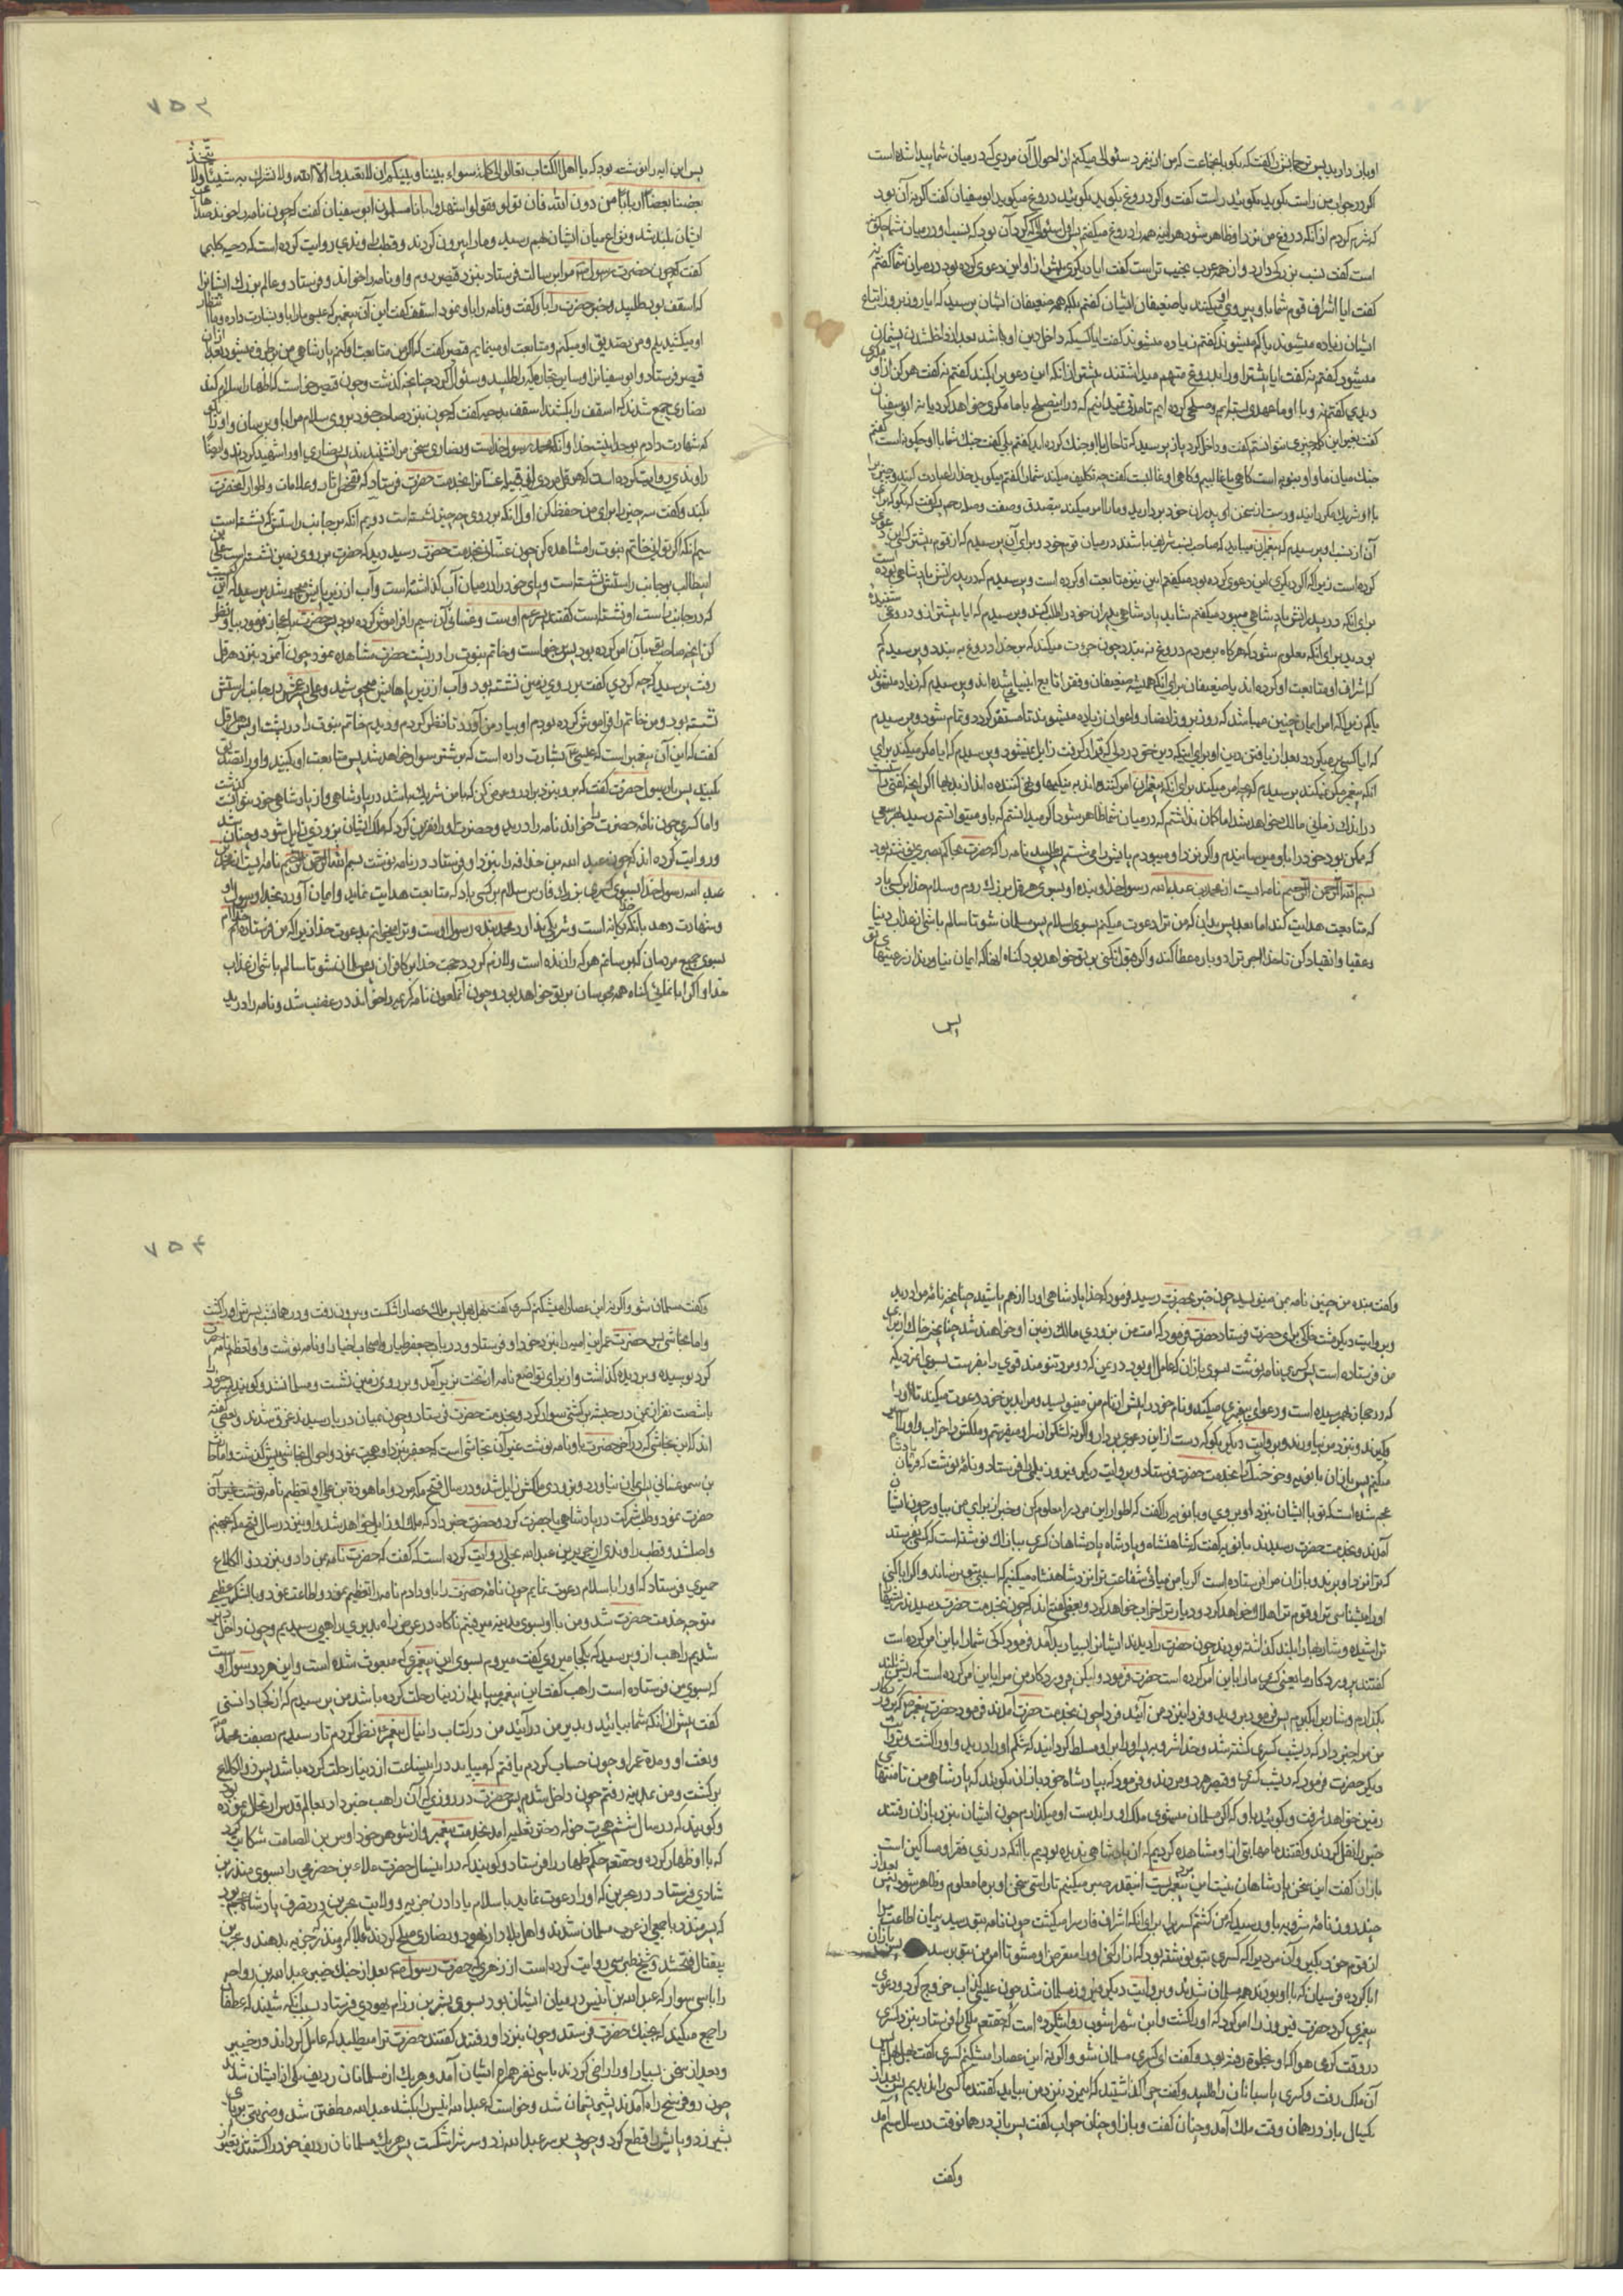 او باز دارید پس ترجمانش را گفت که بگو با جماعت که من از نمرد سئوالی میکنم از احوال آن مردی که در میان شما پیدا شده است
اگر در جواب من راست بگوید بگوئید راست گفت و اگر دروغ بگوید بگوئید دروغ میگوید ابو سفیان گفت اگر نه آن بود
که شرم کردم از آنکه دروغ من نزد او ظاهر شود هر اینه همه را دروغ میگفتم پس اول سئوالی که کرد آن بود که نسب او در میان شما چگونه
است گفتم نسب بزرگی دارد و از همه عرب نجیب تر است گفت ایا دیگری پیش از او این دعوی کرده بود در میان شما گفتم نه
گفت ایا اشراف قوم شما با او پیروی میکنند یا ضعیفان ایشان گفتم بلکه همه ضعیفان ایشان پرسید که ایا روز بروز اتباع
ایشان زیاده میشوند یا کم میشوند گفتم زیاده میشوند گفت ایا کسیکه داخل دین او باشد بعد از داخل شدن پشیمان
میشود گفتم نه گفت ایا پیشتر او را بدروغ متهم میداشتند پیشتر از انکه این دعوی را بکند گفتم نه گفت هرگز از او مکری
دیدی گفتم نه و با او ما عهدی بسته ایم و صلحی کرده ایم تا مدتی نمیدانیم که در این صلح با ما مکری خواهد کرد یا نه ابو سفیان
گفت بغیر این کلمه چیزی نتوانستم گفت و داخل کرد باز پرسید که تا حال ایا با او جنک کرده اید گفتم بلی گفت جنک شما با او چگونه است گفتم
جنک میان ما و او بنوبه است کاهی ما غالبیم و کاهی او غالبست گفت چه تکلیف میکند شما را گفتم میگوید خدا را عبادت کنید و چیزی را
با او شریک مگردانید و دست از سخن ای پدران خود بردارید و ما را امر میکند بصدق و عفت و صله رحم پس گفت که بگو که برای
آن از نسب او پرسیدم که پیغمبران میباید که صاحب نسب شریف باشند در میان قوم خود و برای آن پرسیدم که از قوم پیشتر کسی این دعوی
کرده است زیرا که اگر دیگری این دعوی کرده بود میگفتم این نیز متابعت او کرده است و پرسیدم که در پدرانش پادشاهی بوده است
برای انکه در پدرانش پادشاهی میبود میگفتم شاید پادشاهی پدران خود را طلب کند و پرسیدم که ایا پیشتر از او دروغی شنیده
بودید برای انکه معلوم شود که هرکاه بر مردم دروغ نه بندد چون جرءت میکند که بر خدا دروغ به بندد و پرسیدم که
که اشراف او متابعت او کرده اند یا ضعیفان برای انکه همیشه ضعیفان و فقرا تابع انبیا میشده اند و پرسیدم که زیاد میشوند
یا کم زیرا که امر ایمان چنین میباشد که روز بروز انصار و اعوان زیاده میشوند تا مستقر گردد و تمام شود و پرسیدم
که ایا کسی بر میگردد بعد از یافتن دین او برای اینکه دین حق در دلی که قرار گرفت زایل نمیشود و پرسیدم که ایا مکر میکند برای
انکه پیغمبر مکر نمیکند پرسیدم که بچه امر میکند برای انکه پیغمبران امر کننده اند به نیکیها و نهی کننده اند از بدیها اگر انچه گفتی راست
در اندک زمانی مالک خواهد شد اما کمان نداشتم که در میان شما ظاهر شود اگر میدانستم که باو میتوانستم رسید هر سعی
که ممکن بود خود را باو میرسانیدم و اگر نزد او میبودم پایش را میشستم پس طلبید نامه را که حضرت بحاکم بصری نوشته بود
بسم الله الرحمن الرحیم نامه ایست از محمد بن عبد الله رسول خدا و بنده او بسوی هرقل بزرک روم و سلام خدا بر کسی باد
که متابعت هدایت کند اما بعد پس بدان که من ترا دعوت میکنم بسوی اسلام پس مسلمان شو تا سالم باشی از عذاب دنیا
و عقبا و انقیاد کن تا خدا اجر ترا دوباره عطا کند و اگر قبول نکنی بر تو خواهد بود کناه انها که ایمان نیاورند از رعیتهای تو
پس
۷۵۳
پس این ایه را نوشته بود که یا اهل الکتاب تعالوا الی کلمة سواء بیننا و بینکم ان لا نعبد الا الله ولا نشرک به شیئا ولا یتخذ
بعضنا بعضا اربابا من دون الله فان تولوا فقولوا اشهدوا بانا مسلمون ابو سفیان گفت که چون نامه را خواند صداهای
ایشان بلند شد و نزاع میان ایشان بهم رسید و ما را بیرون کردند و قطب راوندی روایت کرده است که دحیه کلبی
گفت که چون حضرت رسول ص مرا برسالت فرستاد بنزد قیصر روم و او نامه را خواند و فرستاد و عالم بزرک ایشانرا
که اسقف بود طلبید و خبر حضرت را باو گفت و نامه را باو نمود اسقف گفت این آن پیغمبر است که عیسی ما را باو بشارت داده و ما انتظار
او میکشیدیم و من تصدیق او میکنم و متابعت او مینمایم قیصر گفت که اگر من متابعت او کنم پادشاهی من بر طرف میشود بعد از آن
قیصر فرستاد و ابو سفیانرا و سایر تجار مکه را طلبید و سئوال کرد چنانچه کذشت و چون قیصر میخواست که اظهار اسلام کند
نصاری جمع شدند که اسقف را بکشند اسقف بدحیه گفت که چون بنزد صاحب خود بروی سلام مرا باو برسان و او را بگو
که شهادت دادم بوحدانیت خدا و آنکه محمد رسول خداست و نصاری سخن مرا نشنیدند پس نصاری او را شهید کردند و ایضا
راوندی روایت کرده است که هرقل مردی از قبیله غسانرا بخدمت حضرت فرستاد که تفحص اثار و علامات و اطوار آنحضرت
بکند و گفت سه چیز را برای من حفظ کن اول انکه بر روی چه چیز نشسته است دویم آنکه بر جانب راستش که نشسته است
سیم انکه اگر توانی خاتم نبوت را مشاهده کن چون غسانی بخدمت حضرت رسید دید که حضرت بر روی زمین نشسته است و علی بن
ابیطالب بر جانب راستش نشسته است و پای خود را در میان آب کذاشته است و آب از زیر پایش میجوشد پرسید که این کیست
که در جانب راست او نشسته است گفتند پسر عم اوست و غسانی آن سیم را فراموش کرده بود پس حضرت باعجاز فرمود بیا و نظر
کن انچه صاحب تو بآن امر کرده بود پس برخواست و خاتم نبوت را در پشت حضرت مشاهده نمود چون آمد بنزد هرقل
رفت پرسید که چه کردی گفت بر روی زمین نشسته بود و آب از زیر پاهایش میجوشید و علی پسر عمش در جانب راستش
نشسته بود و من خاتم را فراموش کرده بودم او بیاد من آورد تا نظر کردم و دیدم خاتم نبوت را در پشت او هرقل
گفت که این آن پیغمبر است که عیسی ع بشارت داده است که بر شتر سوار خواهد شد پس متابعت او بکنید و او را تصدیق
بکنید پس برسول حضرت گفت که برو بنزد برادرم
و اما کسری چون نامه حضرت را خواند نامه را درید و حضرت او را نفرین کرد که ملک ایشان بزودی زایل شود و چنان شد
و روایت کرده اند که چون عبد الله بن حذافه را بنزد او فرستاد در نامه نوشت بسم الله الرحمن الرحیم نامه ایست از محمد بن
عبد الله رسول خدا بسوی کسری بزرک فارس سلام بر کسی باد که متابعت هدایت نماید و ایمان آورد بخدا و رسول او
و شهادت دهد بآنکه خدا یکانه است و شریکی ندارد و محمد بنده و رسول اوست و ترا میخوانم بدعوت خدا زیرا که من فرستاده خدایم
بسوی جمیع مردمان که بترسانم هر که را زنده است و لازم کردد حجت خدا بر کافران پس مسلمان شو تا سالم باشی از عذاب
خدا و اگر ابا نمائی کناه همه مجوسان بر تو خواهد بود و چون آنملعون نامه کریمه را خواند در غضب شد و نامه را درید
و گفت بنده من چنین نامه بمن مینویسد چون خبر بحضرت رسید فرمود که خدا پادشاهی او را از هم پاشید چنانچه نامه مرا درید
و بروایت دیگر مشت خاکی برای حضرت فرستاد حضرت فرمود که امت من بزودی مالک زمین او خواهند شد چنانچه خاک از برای
من فرستاده است پس کسری نامه نوشت بسوی باذان که عامل او بود در یمن که دو مرد تنومند قوی را بفرست بسوی این مردیکه
که در حجاز بهم رسیده است و دعوای پیغمبری میکند و نام خود را پیش از نام من مینویسد و مرا بدین خود دعوت میکند تا او را
بگیرند و بنزد من بیاورند و بروایت دیگر بگو که دست از این دعوی بردارد و اگر نه لشکری بر سر او میفرستم
میکنم پس باذان بانویه و خرخسک را بخدمت حضرت فرستاد و بروایت دیگر فیروز دیلمی را فرستاد و نامه نوشت که فرمان پادشاه
عجم شده است که تو با ایشان بنزد او بروی و بانویه را گفت که اطوار این مرد را معلوم کن و خبر آن برای من بیاور چون ایشان
آمدند و بخدمت حضرت رسیدند بانویه گفت که شاهنشاه و پادشاه پادشاهان کسری بباذان نوشته است که کسی بفرستد
که ترا نزد او برند و باذان مرا فرستاده است اگر با من میائی شفاعت ترا نزد شاهنشاه میکنم که اسیبی بتو نرساند و اگر ابا کنی
او را میشناسی ترا و قوم ترا هلاک خواهد کرد و دیار ترا خراب خواهد کرد و بعضی گفته اند که چون بخدمت حضرت رسیدند ریشها را
تراشیده و شاربها را بلند کذاشته بودند چون حضرت را دیدند ایشانرا بسیار بد آمد فرمود که کی شما را باین امر کرده است
گفتند پروردکار ما یعنی کسری ما را باین امر کرده است حضرت فرمود و لیکن پروردکار من مرا باین امر کرده است که ریش را بلند
بکذارم و شارب را بگیرم پس فرمود بروید و فردا بنزد من آئید فردا چون بخدمت حضرت آمدند فرمود حضرت پیغمبر ص که پروردکار
من مرا خبر داد که دیشب کسری کشته شد و خدا شرویه پسر او را بر او مسلط کردانید که شکم او را درید و او را کشت و بروایت
دیگر حضرت فرمود که دیشب کسری و قیصر هر دو مردند و فرمود که بپادشاه خود باذان بگوئید که پادشاهی من تا منتهای
زمین خواهد گرفت و بگوئید باو که اگر مسلمان میشوی ملک او را بدست او میکذارم چون ایشان بنزد باذان رفتند
خبر را نقل کردند و گفتند ما مهابتی از او مشاهده کردیم که از پادشاهی ندیده بودیم با آنکه در زی فقرا و مساکین است
باذان گفت این سخن پادشاهان نیست این پیغمبر است اینقدر صبر میکنیم تا راستی سخن او بر ما معلوم و ظاهر شود پس بعد از
چند روز نامه شرویه باو رسید که من کشتم کسری را برای آنکه اشراف فارس را میکشت چون نامه بتو رسد بیمان اطاعت مرا
از قوم خود بگیر و آن مردیرا که کسری بتو نوشته بود که ازار کنی او را متعرض او مشو تا امر من بتو برسد پس باذان
ابا کرده فرسیان که با او بودند همه مسلمان شدند و بروایت دیگر فیروز مسلمان شد چون عیسی کذاب خروج کرد و دعوی
پیغمبری کرد حضرت فیروز را امر کرد که او را کشت و ابن شهر اشوب روایت کرده است که حقتعالی ملکی را فرستاد بنزد کسری
در وقت گرمی هوا که او بخلوة رفته بود و گفت ای کسری مسلمان شو و اگر نه این عصا را میشکنم کسری گفت بهل بهل پس
آن ملک رفت و کسری پاسبانان را طلبید و گفت چرا کذاشتید که این مرد بنزد من بیاید گفتند ما کسی را ندیدیم پس بعد از
یکسال باز در همان وقت ملک آمد و چنان گفت و باز او چنان جواب گفت پس باز در همانوقت در سال سیم آمد
و گفت
۷۵۴
و گفت مسلمان شو و اگر نه این عصا را میشکنم کسری گفت بهل بهل پس ملک عصا را شکست و بیرون رفت و در همان شب پسرش او را کشت
و اما نجاشی پس حضرت عمرو بن امیه را بنزد خود او فرستاد و در باب جعفر طیار و اصحاب او را نامه نوشت و او تعظیم نامه حضرت
کرد بوسیده و بر دیده کذاشت و از برای تواضع نامه از تخت بزیر آمد و بر روی زمین نشست و مسلمان شد و گویند پسر خود را
با شصت نفر از یمنی در حبشه بر کشتی سوار کرد و بخدمت حضرت فرستاد و چون بمیان دریا رسیدند غرق شدند و بعضی گفته
اند که این نجاشی که در آخر حضرت باو نامه نوشت غیر آن نجاشی است که جعفر بنزد او هجرت نمود و احوال نجاشی پیش گذشت و اما حارث
بن شمر غسانی پس ایمان نیاورد و بزودی ملکش زایل شد و در سال فتح مکه مرد و اما هوذة بن علی او تعظیم نامه نوشت
حضرت نمود و طلب شرکت در پادشاهی با حضرت کرد و حضرت خبر داد که ملک او زایل خواهد شد و او نیز در سال فتح مکه بجهنم
واصل شد و قطب راوندی از جریر بن عبد الله بجلی روایت کرده است که گفت که حضرت نامه بمن داد و بنزد ذو الکلاع
حمیری فرستاد که او را باسلام دعوت نمایم چون نامه حضرت را باو دادم نامه را تعظیم نمود و اطاعت نمود و با لشکر عظیم
متوجه خدمت حضرت شد و من با او بسوی مدینه میرفتم ناکاه در عرض راه بدیری راهبی رسیدیم و چون داخل دیر
شدیم راهب از او پرسید که بکجا میروی گفت میروم بسوی این پیغمبری که مبعوث شده است و این مرد رسول اوست
که بسوی من فرستاده است راهب گفت این پیغمبر میباید از دنیا رحلت کرده باشد من پرسیدم که از کجا دانستی
گفت پیش از انکه شما بیائید و بدیر من درآئید من در کتاب دانیال پیغمبر نظر کردم تا رسیدم بصفت محمد ص
و نعت او و مدة عمر او چون حساب کردم یافتم که میباید در اینساعت از دنیا رحلت کرده باشد پس ذو الکلاع
برگشت و من بمدینه رفتم چون داخل شدم پس حضرت در روزی که آن راهب خبر داد بعالم قدس ارتحال نموده بود
و گویند که در سال ششم هجرت خوله دختر ثعلبه آمد بخدمت پیغمبر و از شوهر خود اوس بن الصامت شکایت کرد
که با او ظهار کرده و حقتعالی حکم ظهار را فرستاد و گویند که در اینسال حضرت علاء بن حضرمی را بسوی منذر بن
شادی فرستاد در بحرین که او را دعوت نماید باسلام یا دادن جزیه و ولایت بحرین در تصرف پادشاه عجم بود
که پس منذر با جمعی از عرب مسلمان شدند و اهل بلاد از یهود و نصاری صلح کردند با علا و منذر که جزیه بدهند و بحرین
بیقتال فتح شد و شیخ طبرسی روایت کرده است از زهری که حضرت رسول ص بعد از جنک خیبر عبد الله بن رواحه
را با سی سوار که عبد الله بن انیس در میان ایشان بود بسوی بشیر بن رزام یهودی فرستاد بسبب انکه شنیدند که غطفان را
راجع میکند که بجنک حضرت فرستد و چون بنزد او رفتند گفتند حضرت ترا میطلبد که عامل گرداند در خیبر
و بعد از سخن بسیار او را راضی کردند با سی نفر همراه ایشان آمد و هر یک از مسلمانان ردیف یکی از ایشان شد
چون دو فرسخ راه آمدند بشیر پشیمان شد و خواست که عبد الله انیس را بکشد عبد الله مطلع شد و ضربتی بر پای
بشیر زد و پایش را قطع کرد و چوبی بر سر عبد الله زد و سرش را شکست پس هر یک مسلمانان ردیف خود را کشتند بغیر از